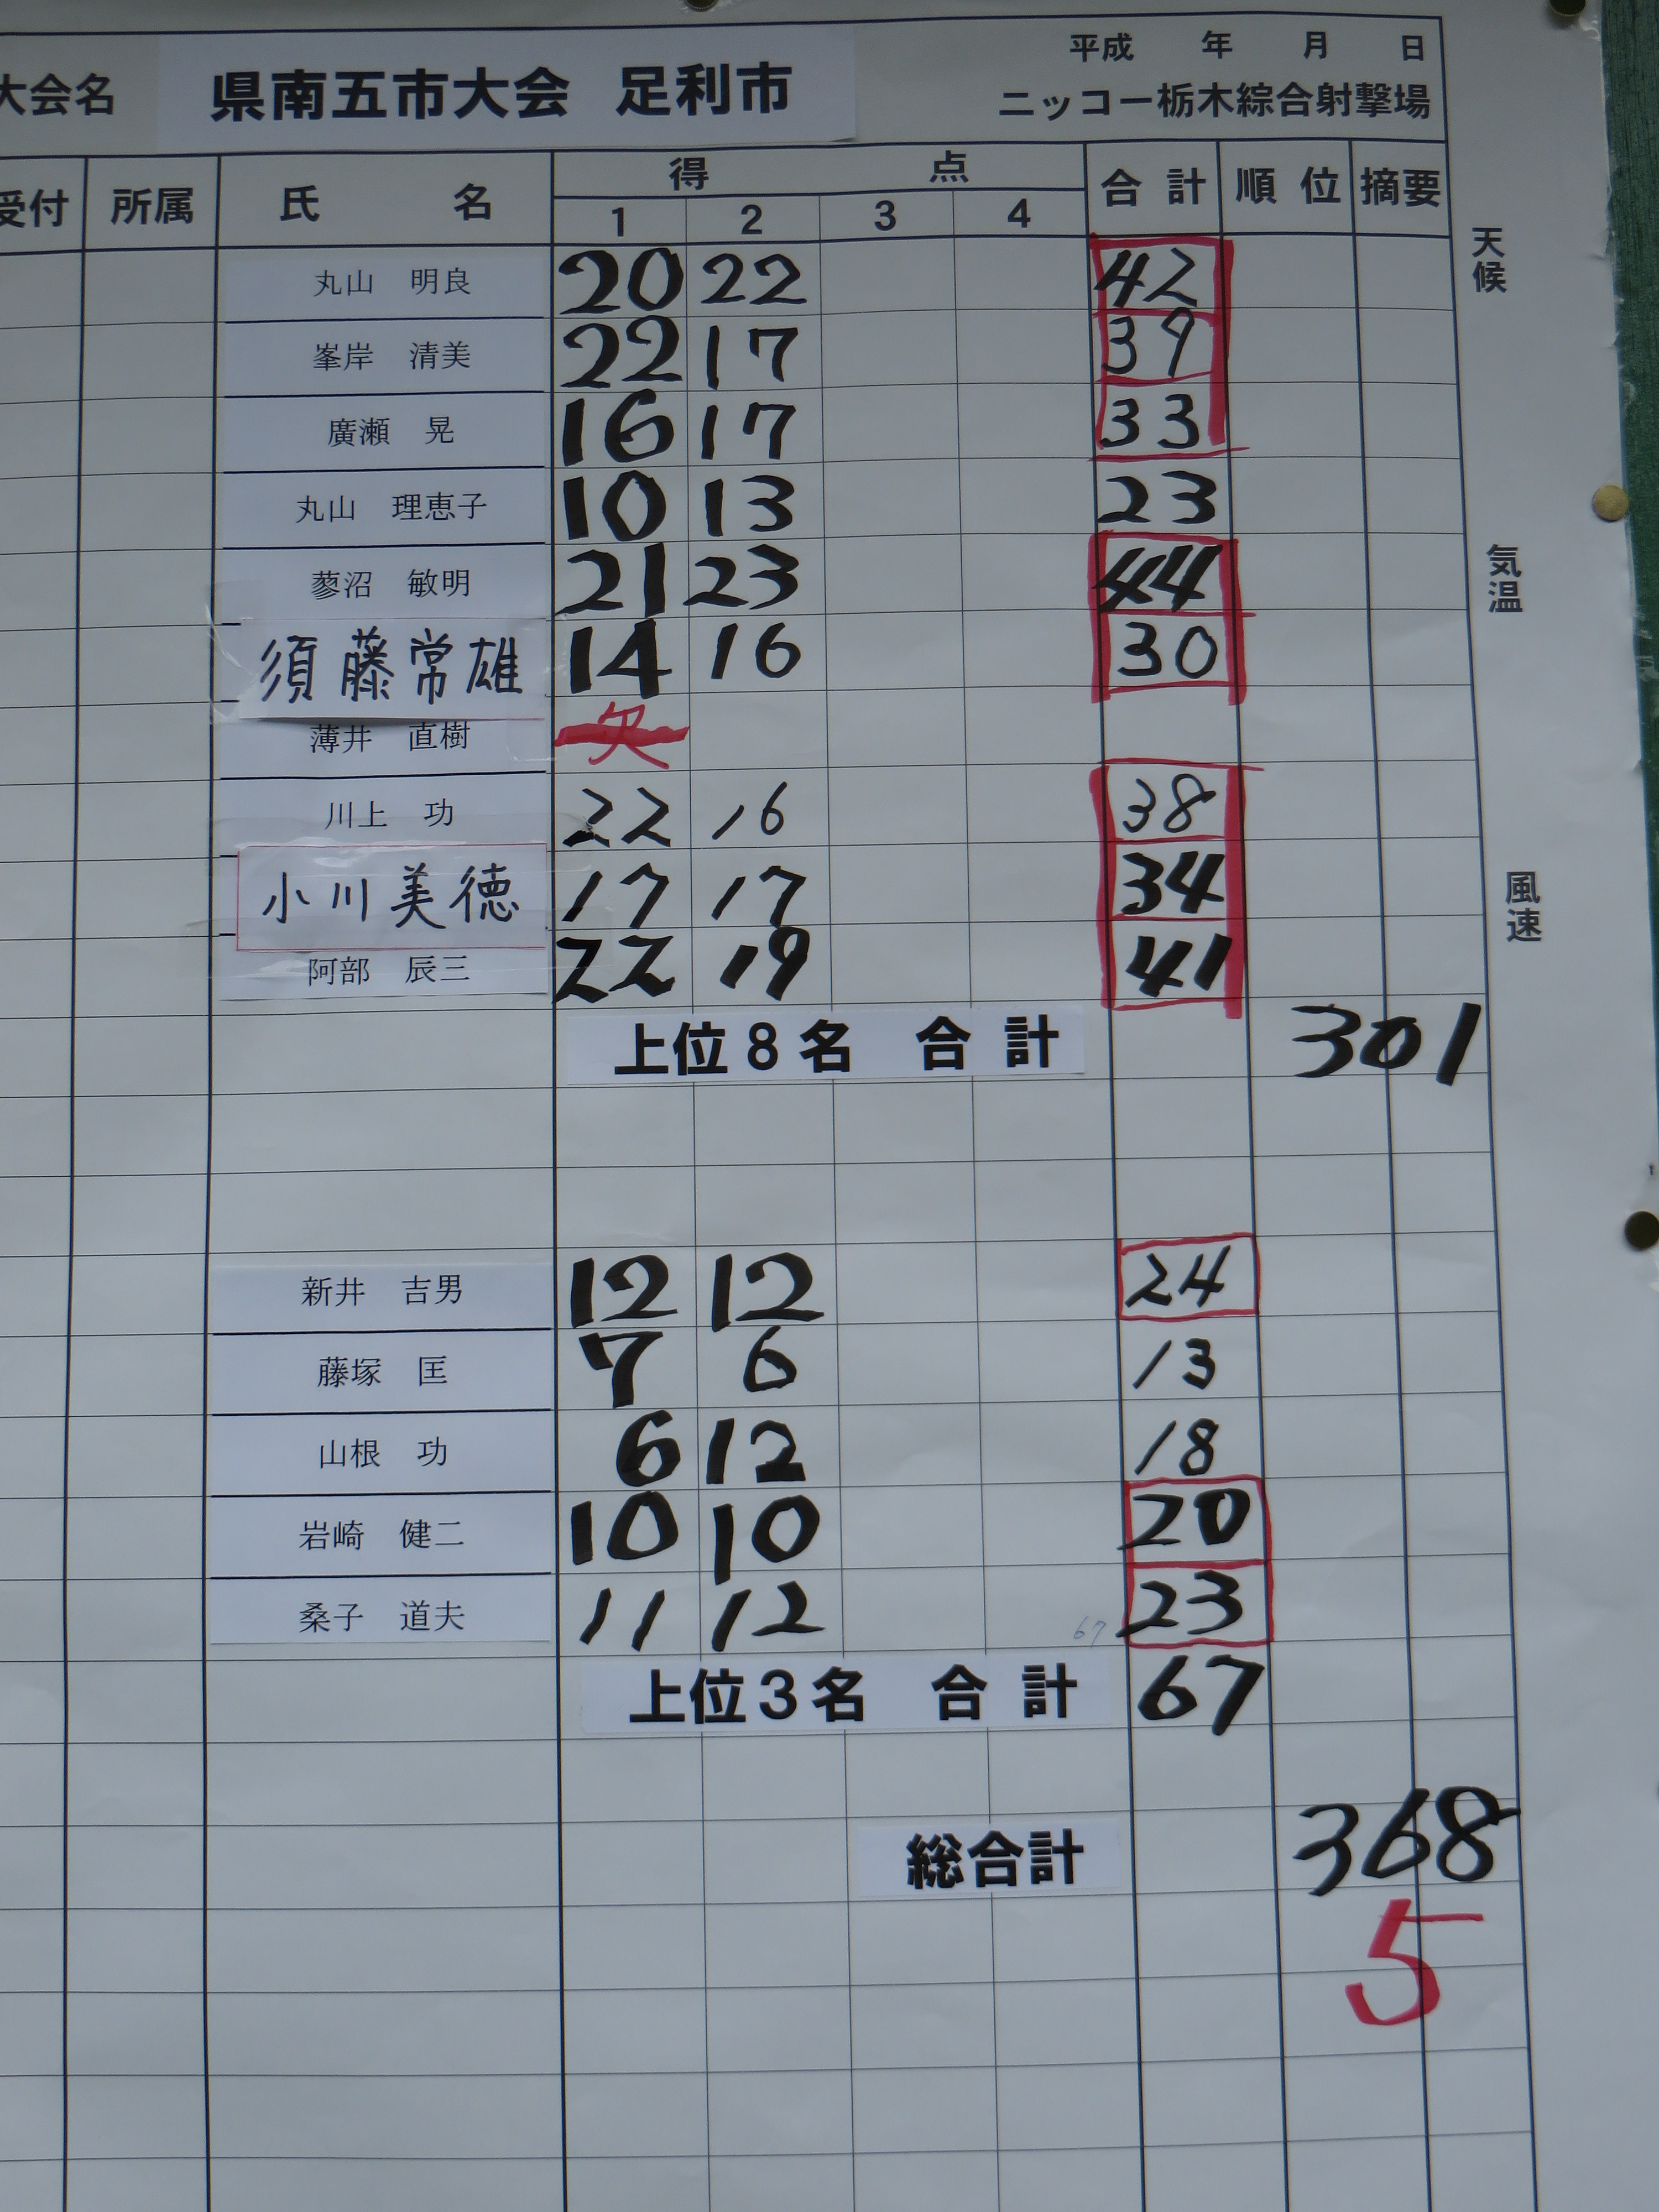 平成 年 月 日
大会名 県南五市大会 足利市 ニッコー栃木綜合射撃場
受付 所属 氏 名 得 点 合 計 順 位 摘要
1 2 3 4
天候
丸山 明良 20 22 42
峯岸 清美 22 17 39
廣瀬 晃 16 17 33
丸山 理恵子 10 13 23
気温
蓼沼 敏明 21 23 44
須藤常雄 14 16 30
薄井 直樹 欠
川上 功 22 16 38
風速
小川美徳 17 17 34
阿部 辰三 22 19 41
上位8名 合 計 301
新井 吉男 12 12 24
藤塚 匡 7 6 13
山根 功 6 12 18
岩崎 健二 10 10 20
桑子 道夫 11 12 67 23
上位3名 合 計 67
総合計 368
5